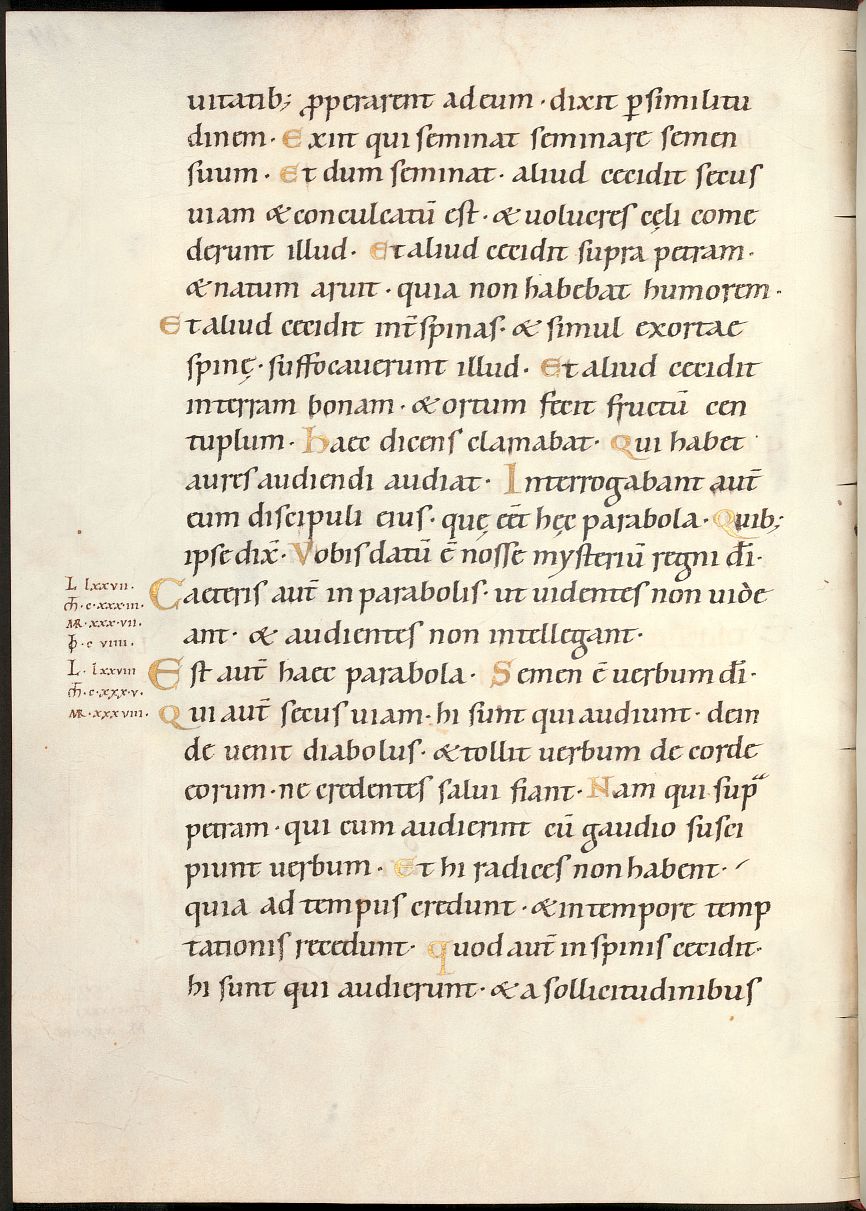 uitatib; ꝓperarent ad eum · dixit ꝑ similitu
dinem · Exiit qui seminat seminare semen
suum · Et dum seminat · aliud cecidit secus
uiam & conculcatū est · & uolucres cęli come
derunt illud · Et aliud cecidit supra petram ·
& natum aruit · quia non habebat humorem ·
Et aliud cecidit int̄ spinas · & simul exortae
spinę · suffocauerunt illud · Et aliud cecidit
in terram bonam · & ortum fecit fructū cen
tuplum · Haec dicens clamabat · Qui habet
aures audiendi audiat · Interrogabant aut̄
eum discipuli eius · quę eēt hęc parabola · Quib;
ipse dix̄ · Vobis datū ē nosse mysteriū regni dī ·
L lxxvii ·
Caeteris aut̄ in parabolis · ut uidentes non uide
m̄ · c · xxx · iii ·
MR · xxx · vii ·
ant · & audientes non intellegant ·
ioh · c viiii ·
L · lxxviii
Est aut̄ haec parabola · Semen ē uerbum dī ·
m̄ · c · xxx · v ·
MR · xxx viii ·
Qui aut̄ secus uiam · hi sunt qui audiunt · dein
de uenit diabolus · & tollit uerbum de corde
eorum · ne credentes salui fiant · Nam qui sup̄
petram · qui cum audierint cū gaudio susci
piunt uerbum · Et hi radices non habent ·
quia ad tempus credunt · & in tempore temp
tationis recedunt · quod aut̄ in spinis cecidit ·
hi sunt qui audierunt · & a sollicitudinibus